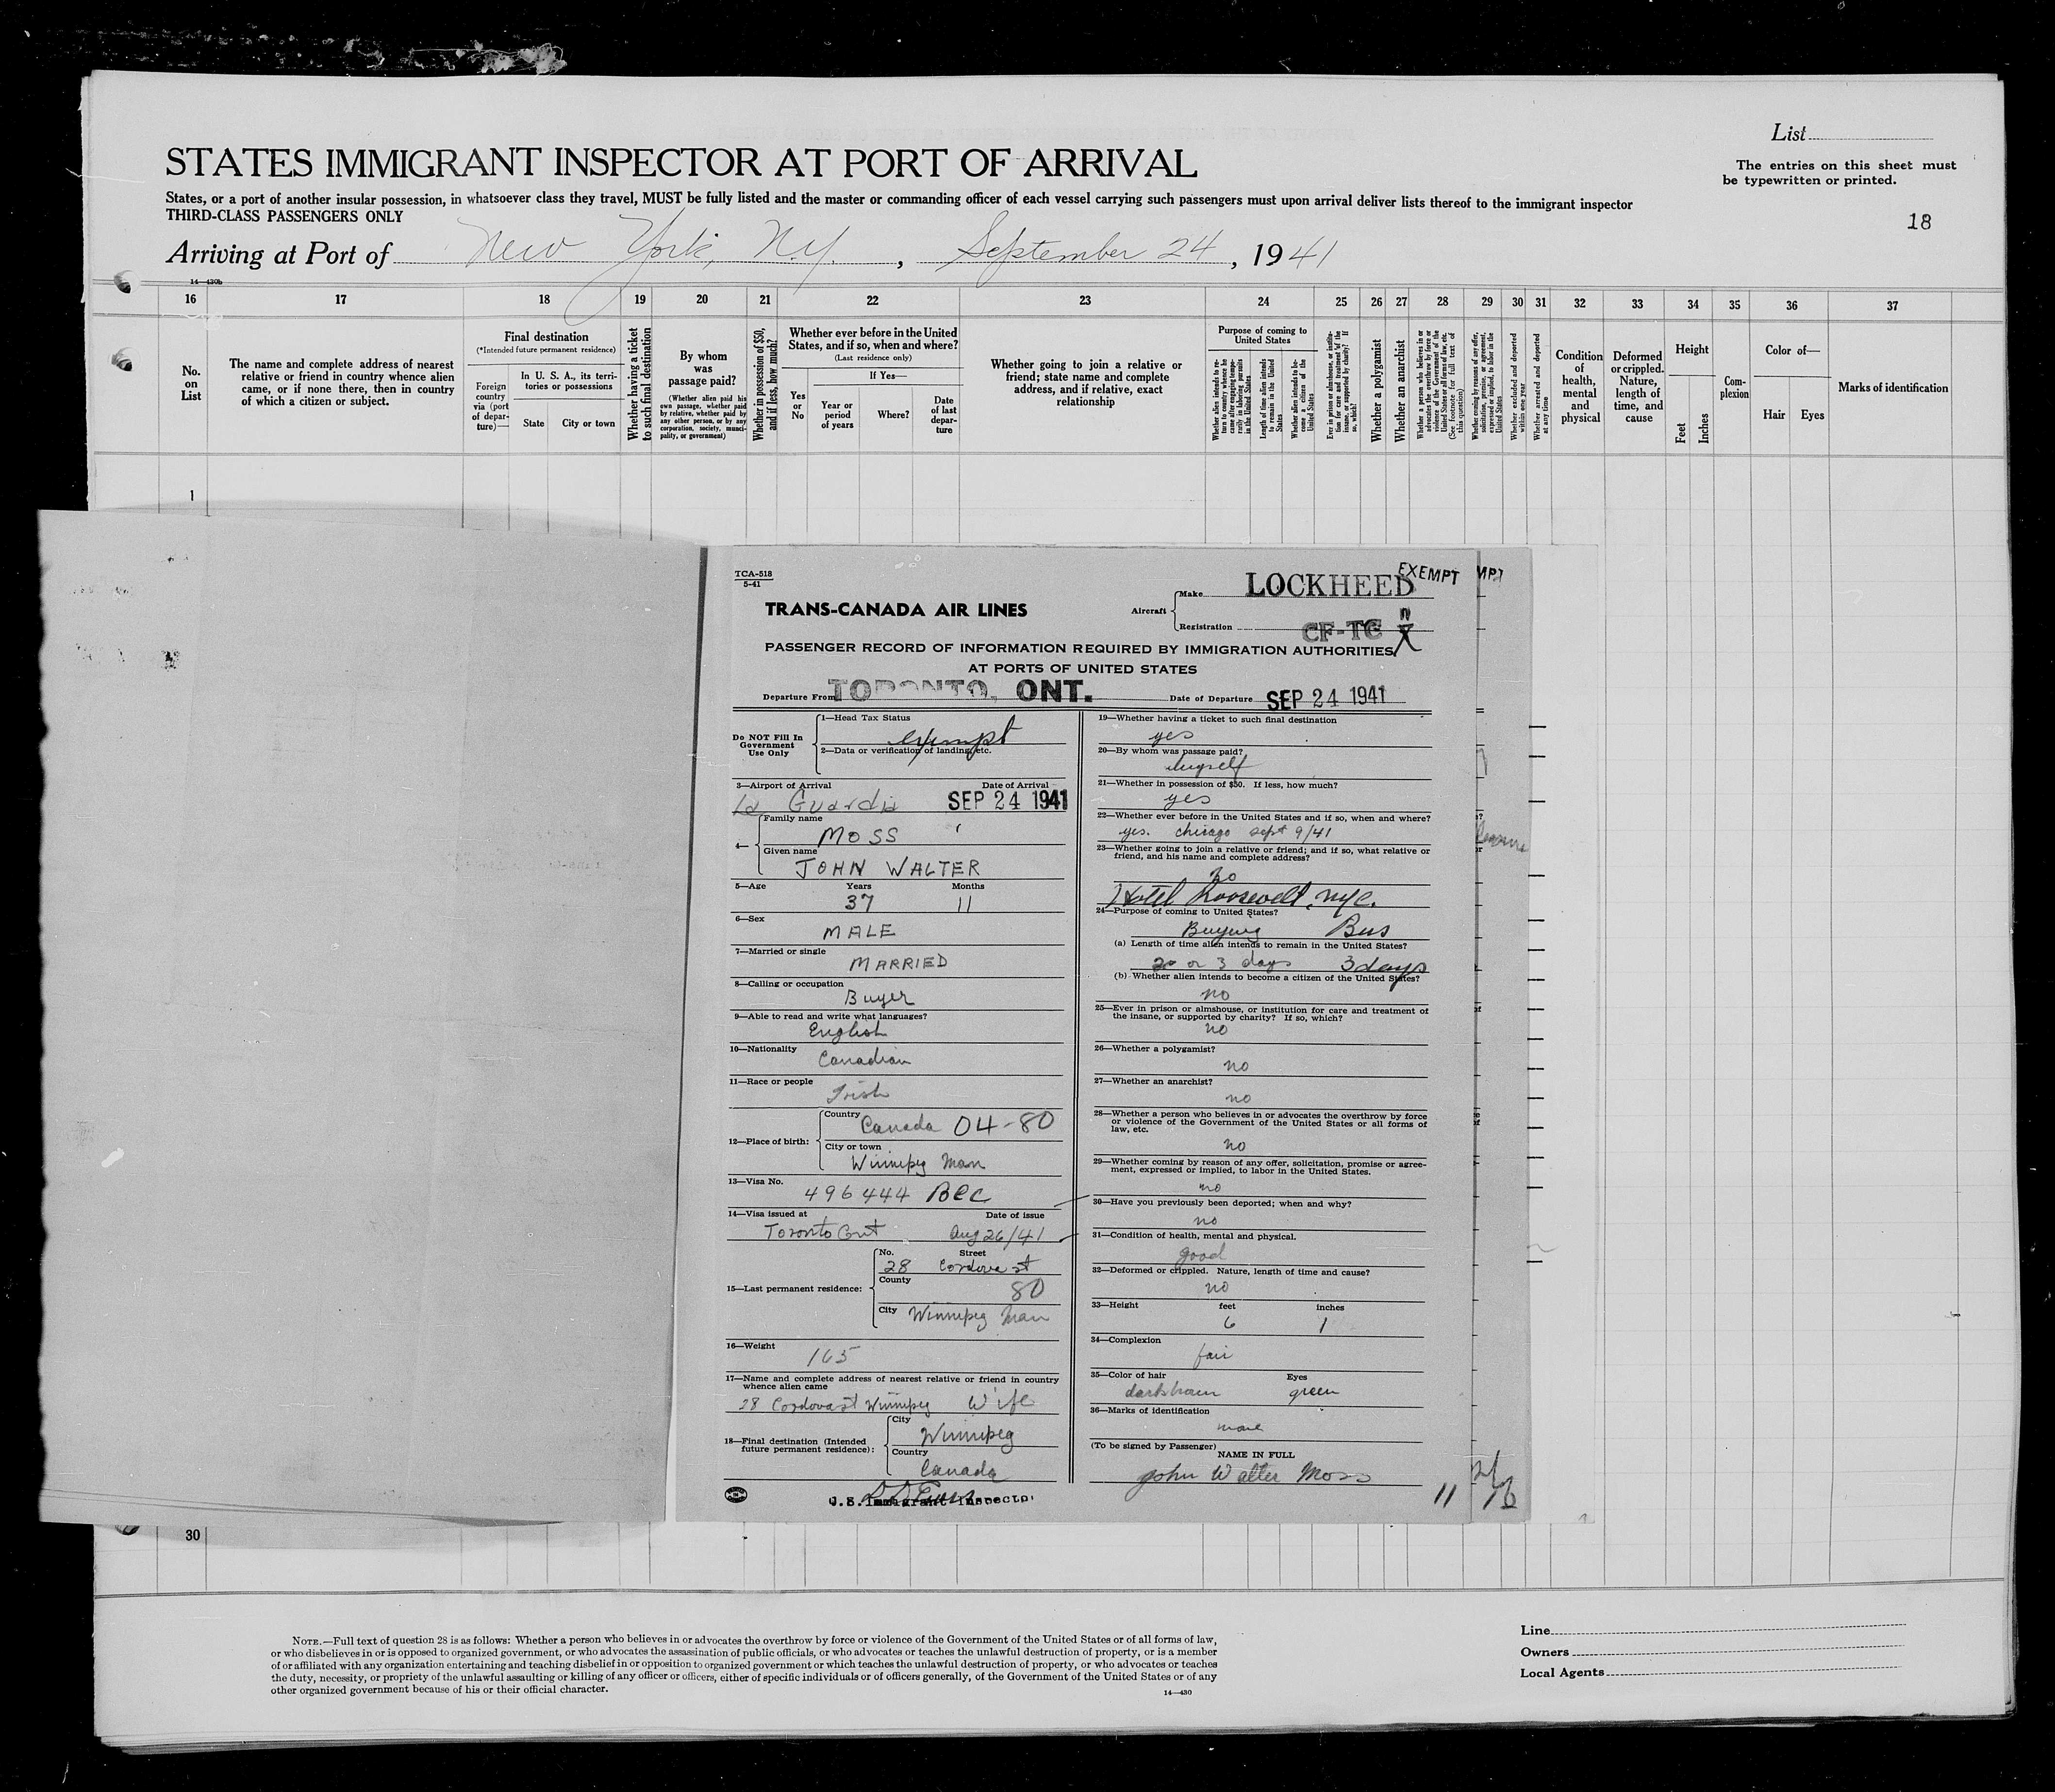 List
STATES IMMIGRANT INSPECTOR AT PORT OF ARRIVAL
The entries on this sheet must
be typewritten or printed.
States, or a port of another insular possession, in whatsoever class they travel, MUST be fully listed and the master or commanding officer of each vessel carrying such passengers must upon arrival deliver lists thereof to the immigrant inspector
THIRD-CLASS PASSENGERS ONLY
18
Arriving at Port of New York, N.Y., September 24, 1941
14—430b
16 17 18 19 20 21 22 23 24 25 26 27 28 29 30 31 32 33 34 35 36 37
No.
on
List
The name and complete address of nearest
relative or friend in country whence alien
came, or if none there, then in country
of which a citizen or subject.
Final destination
(*Intended future permanent residence)
Foreign
country
via (port
of depar-
ture)—
In U. S. A., its terri-
tories or possessions
State City or town
Whether having a ticket
to such final destination
By whom
was
passage paid?
(Whether alien paid his
own passage, whether paid
by relative, whether paid by
any other person, or by any
corporation, society, munici-
pality, or government)
Whether in possession of $50,
and if less, how much?
Whether ever before in the United
States, and if so, when and where?
(Last residence only)
Yes
or
No
If Yes—
Year or
period
of years
Where?
Date
of last
depar-
ture
Whether going to join a relative or
friend; state name and complete
address, and if relative, exact
relationship
Purpose of coming to
United States
Length of time alien intends
to remain in the United
States
Whether alien intends to be-
come a citizen of the
United States
Whether a polygamist
Whether an anarchist
Whether excluded and deported
within one year
Whether arrested and deported
at any time
Condition
of
health,
mental
and
physical
Deformed
or crippled.
Nature,
length of
time, and
cause
Height
Feet
Inches
Com-
plexion
Color of—
Hair Eyes
Marks of identification
1
TCA-518
5-41
TRANS-CANADA AIR LINES
Aircraft
Make LOCKHEED
EXEMPT
MPT
Registration CF-TC N
PASSENGER RECORD OF INFORMATION REQUIRED BY IMMIGRATION AUTHORITIES
AT PORTS OF UNITED STATES
Departure From TORONTO, ONT.
Date of Departure SEP 24 1941
Do NOT Fill In
Government
Use Only
1—Head Tax Status
exempt
2—Data or verification of landing, etc.
3—Airport of Arrival Date of Arrival
La Guardia SEP 24 1941
4—
Family name
MOSS
Given name
JOHN WALTER
5—Age Years Months
37 11
6—Sex
MALE
7—Married or single
MARRIED
8—Calling or occupation
Buyer
9—Able to read and write what languages?
English
10—Nationality
Canadian
11—Race or people
Irish
12—Place of birth:
Country
Canada 04-80
City or town
Winnipeg Man
13—Visa No.
496444 BCC
14—Visa issued at Date of issue
Toronto Ont Aug 26/41
15—Last permanent residence:
No. Street
28 Cordova st
County
80
City Winnipeg Man
16—Weight
165
17—Name and complete address of nearest relative or friend in country
whence alien came
28 Cordova st Winnipeg Wife
18—Final destination (Intended
future permanent residence):
City
Winnipeg
Country
Canada
U.S. Immigrant Inspector
19—Whether having a ticket to such final destination
yes
20—By whom was passage paid?
myself
21—Whether in possession of $50. If less, how much?
yes
22—Whether ever before in the United States and if so, when and where?
yes. chicago sept 9/41
23—Whether going to join a relative or friend; and if so, what relative or
friend, and his name and complete address?
no
Hotel Roosevelt, nyc.
24—Purpose of coming to United States?
Buying Bus
(a) Length of time alien intends to remain in the United States?
2 or 3 days 3 days
(b) Whether alien intends to become a citizen of the United States?
no
25—Ever in prison or almshouse, or institution for care and treatment of
the insane, or supported by charity? If so, which?
no
26—Whether a polygamist?
no
27—Whether an anarchist?
no
28—Whether a person who believes in or advocates the overthrow by force
or violence of the Government of the United States or all forms of
law, etc.
no
29—Whether coming by reason of any offer, solicitation, promise or agree-
ment, expressed or implied, to labor in the United States.
no
30—Have you previously been deported; when and why?
no
31—Condition of health, mental and physical.
good
32—Deformed or crippled. Nature, length of time and cause?
no
33—Height feet inches
6 1
34—Complexion
fair
35—Color of hair Eyes
dark brown green
36—Marks of identification
none
(To be signed by Passenger)
NAME IN FULL
John Walter Moss
11
16
30
NOTE.—Full text of question 28 is as follows: Whether a person who believes in or advocates the overthrow by force or violence of the Government of the United States or of all forms of law,
or who disbelieves in or is opposed to organized government, or who advocates the assassination of public officials, or who advocates or teaches the unlawful destruction of property, or is a member
of or affiliated with any organization entertaining and teaching disbelief in or opposition to organized government or which teaches the unlawful destruction of property, or who advocates or teaches
the duty, necessity, or propriety of the unlawful assaulting or killing of any officer or officers, either of specific individuals or of officers generally, of the Government of the United States or of any
other organized government because of his or their official character.
14—430
Line
Owners
Local Agents